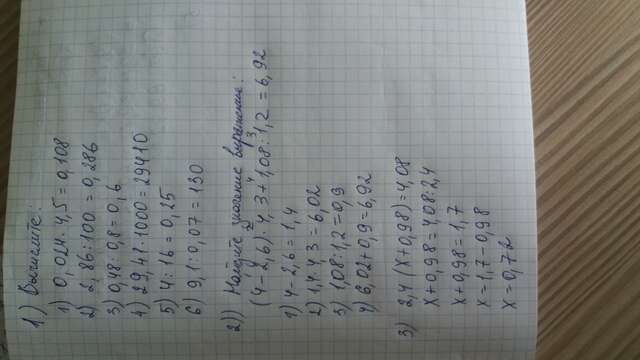 1) Вычислите:
1) 0,024 · 4,5 = 0,108
2) 2,86 : 100 = 0,286
3) 0,48 : 0,8 = 0,6
4) 29,41 · 1000 = 29410
5) 4 : 16 = 0,25
6) 9,1 : 0,07 = 130
2)) Найдите значение выражение:
(4 - 2,6) · 4,3 + 1,08 : 1,2 = 6,92
1) 4 - 2,6 = 1,4
2) 1,4 · 4,3 = 6,02
3) 1,08 : 1,2 = 0,9
4) 6,02 + 0,9 = 6,92
3) 2,4 (x + 0,98) = 4,08
x + 0,98 = 4,08 : 2,4
x + 0,98 = 1,7
x = 1,7 - 0,98
x = 0,72